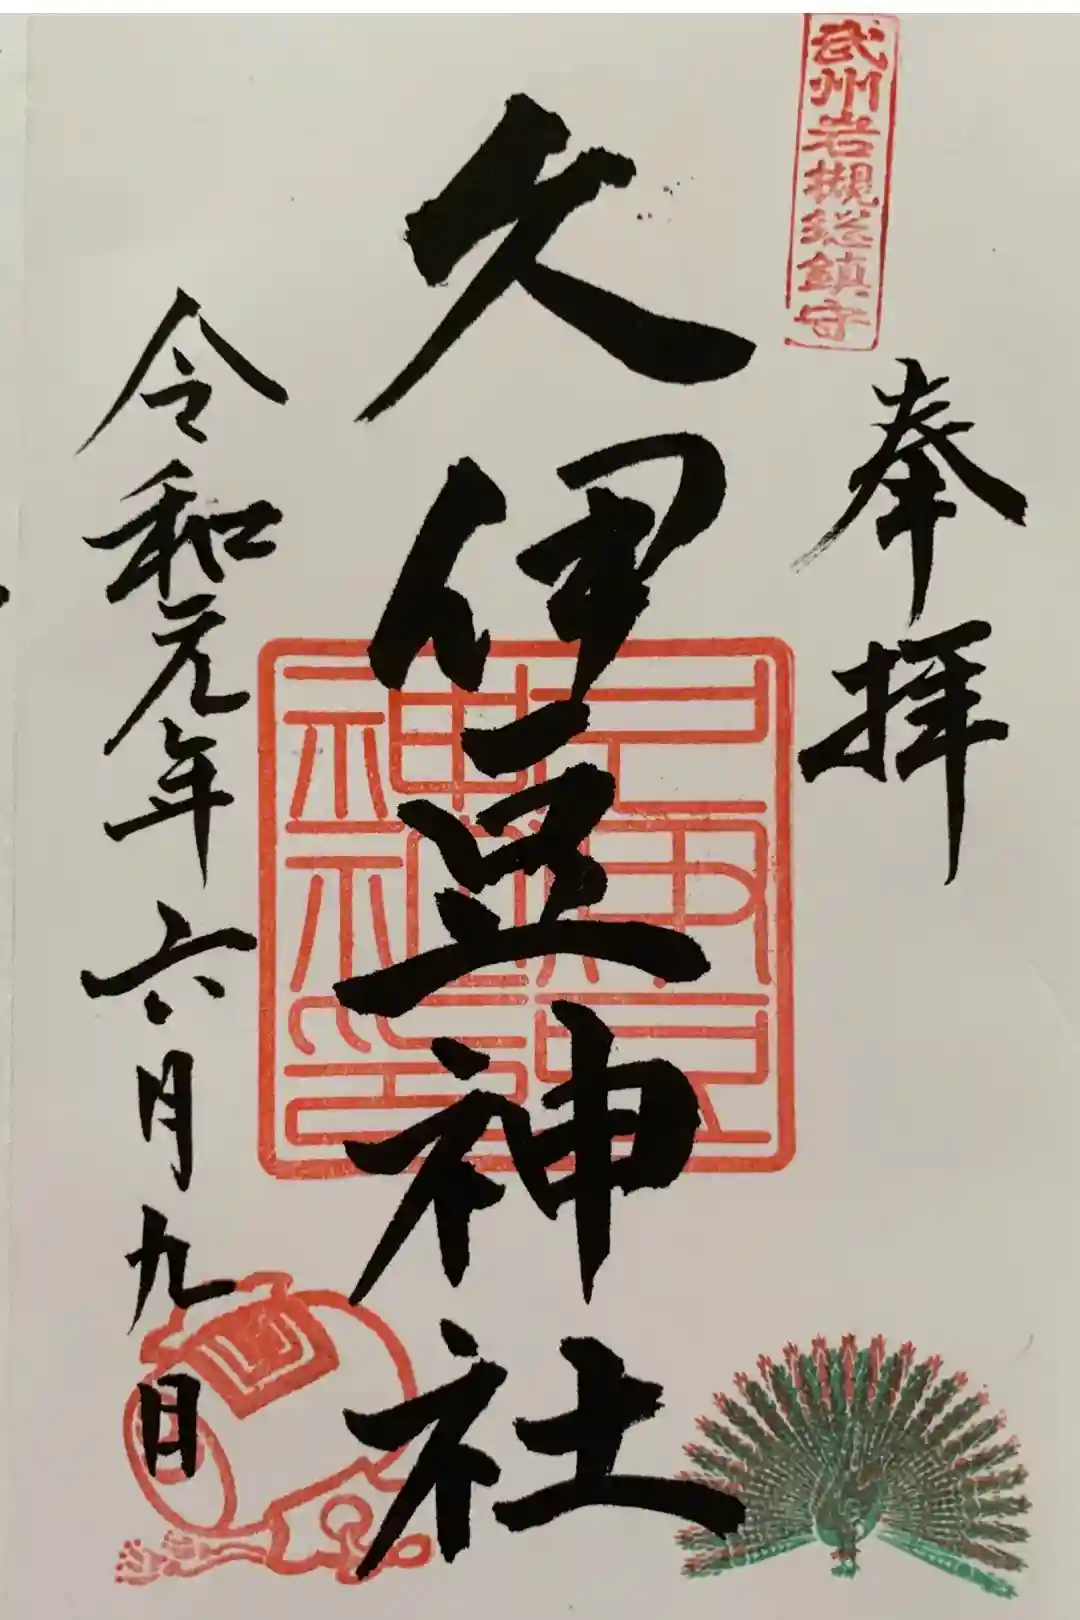 武州岩槻総鎮守
奉拝
久伊豆神社
令和元年六月九日